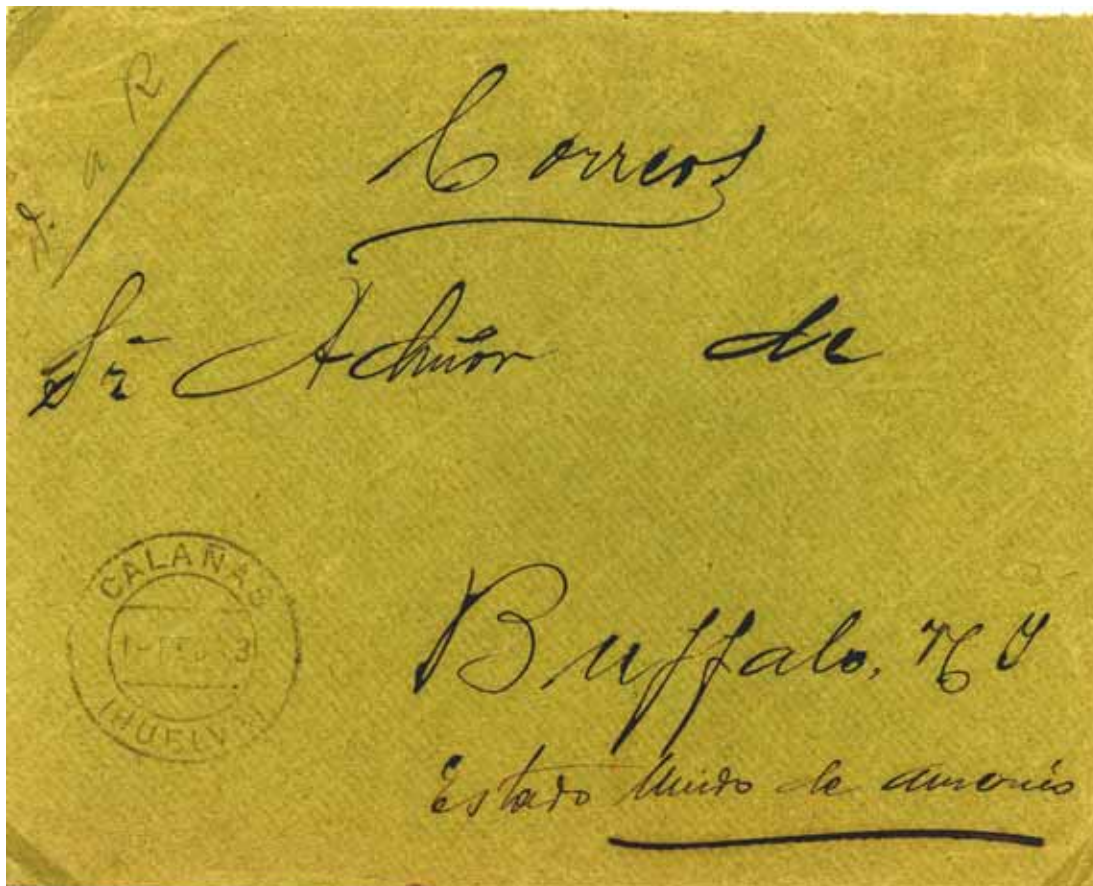 D. a R
Correos
Sr Admor de
CALAÑAS
(HUELVA)
Buffalo, N Y
Estado Unido de America